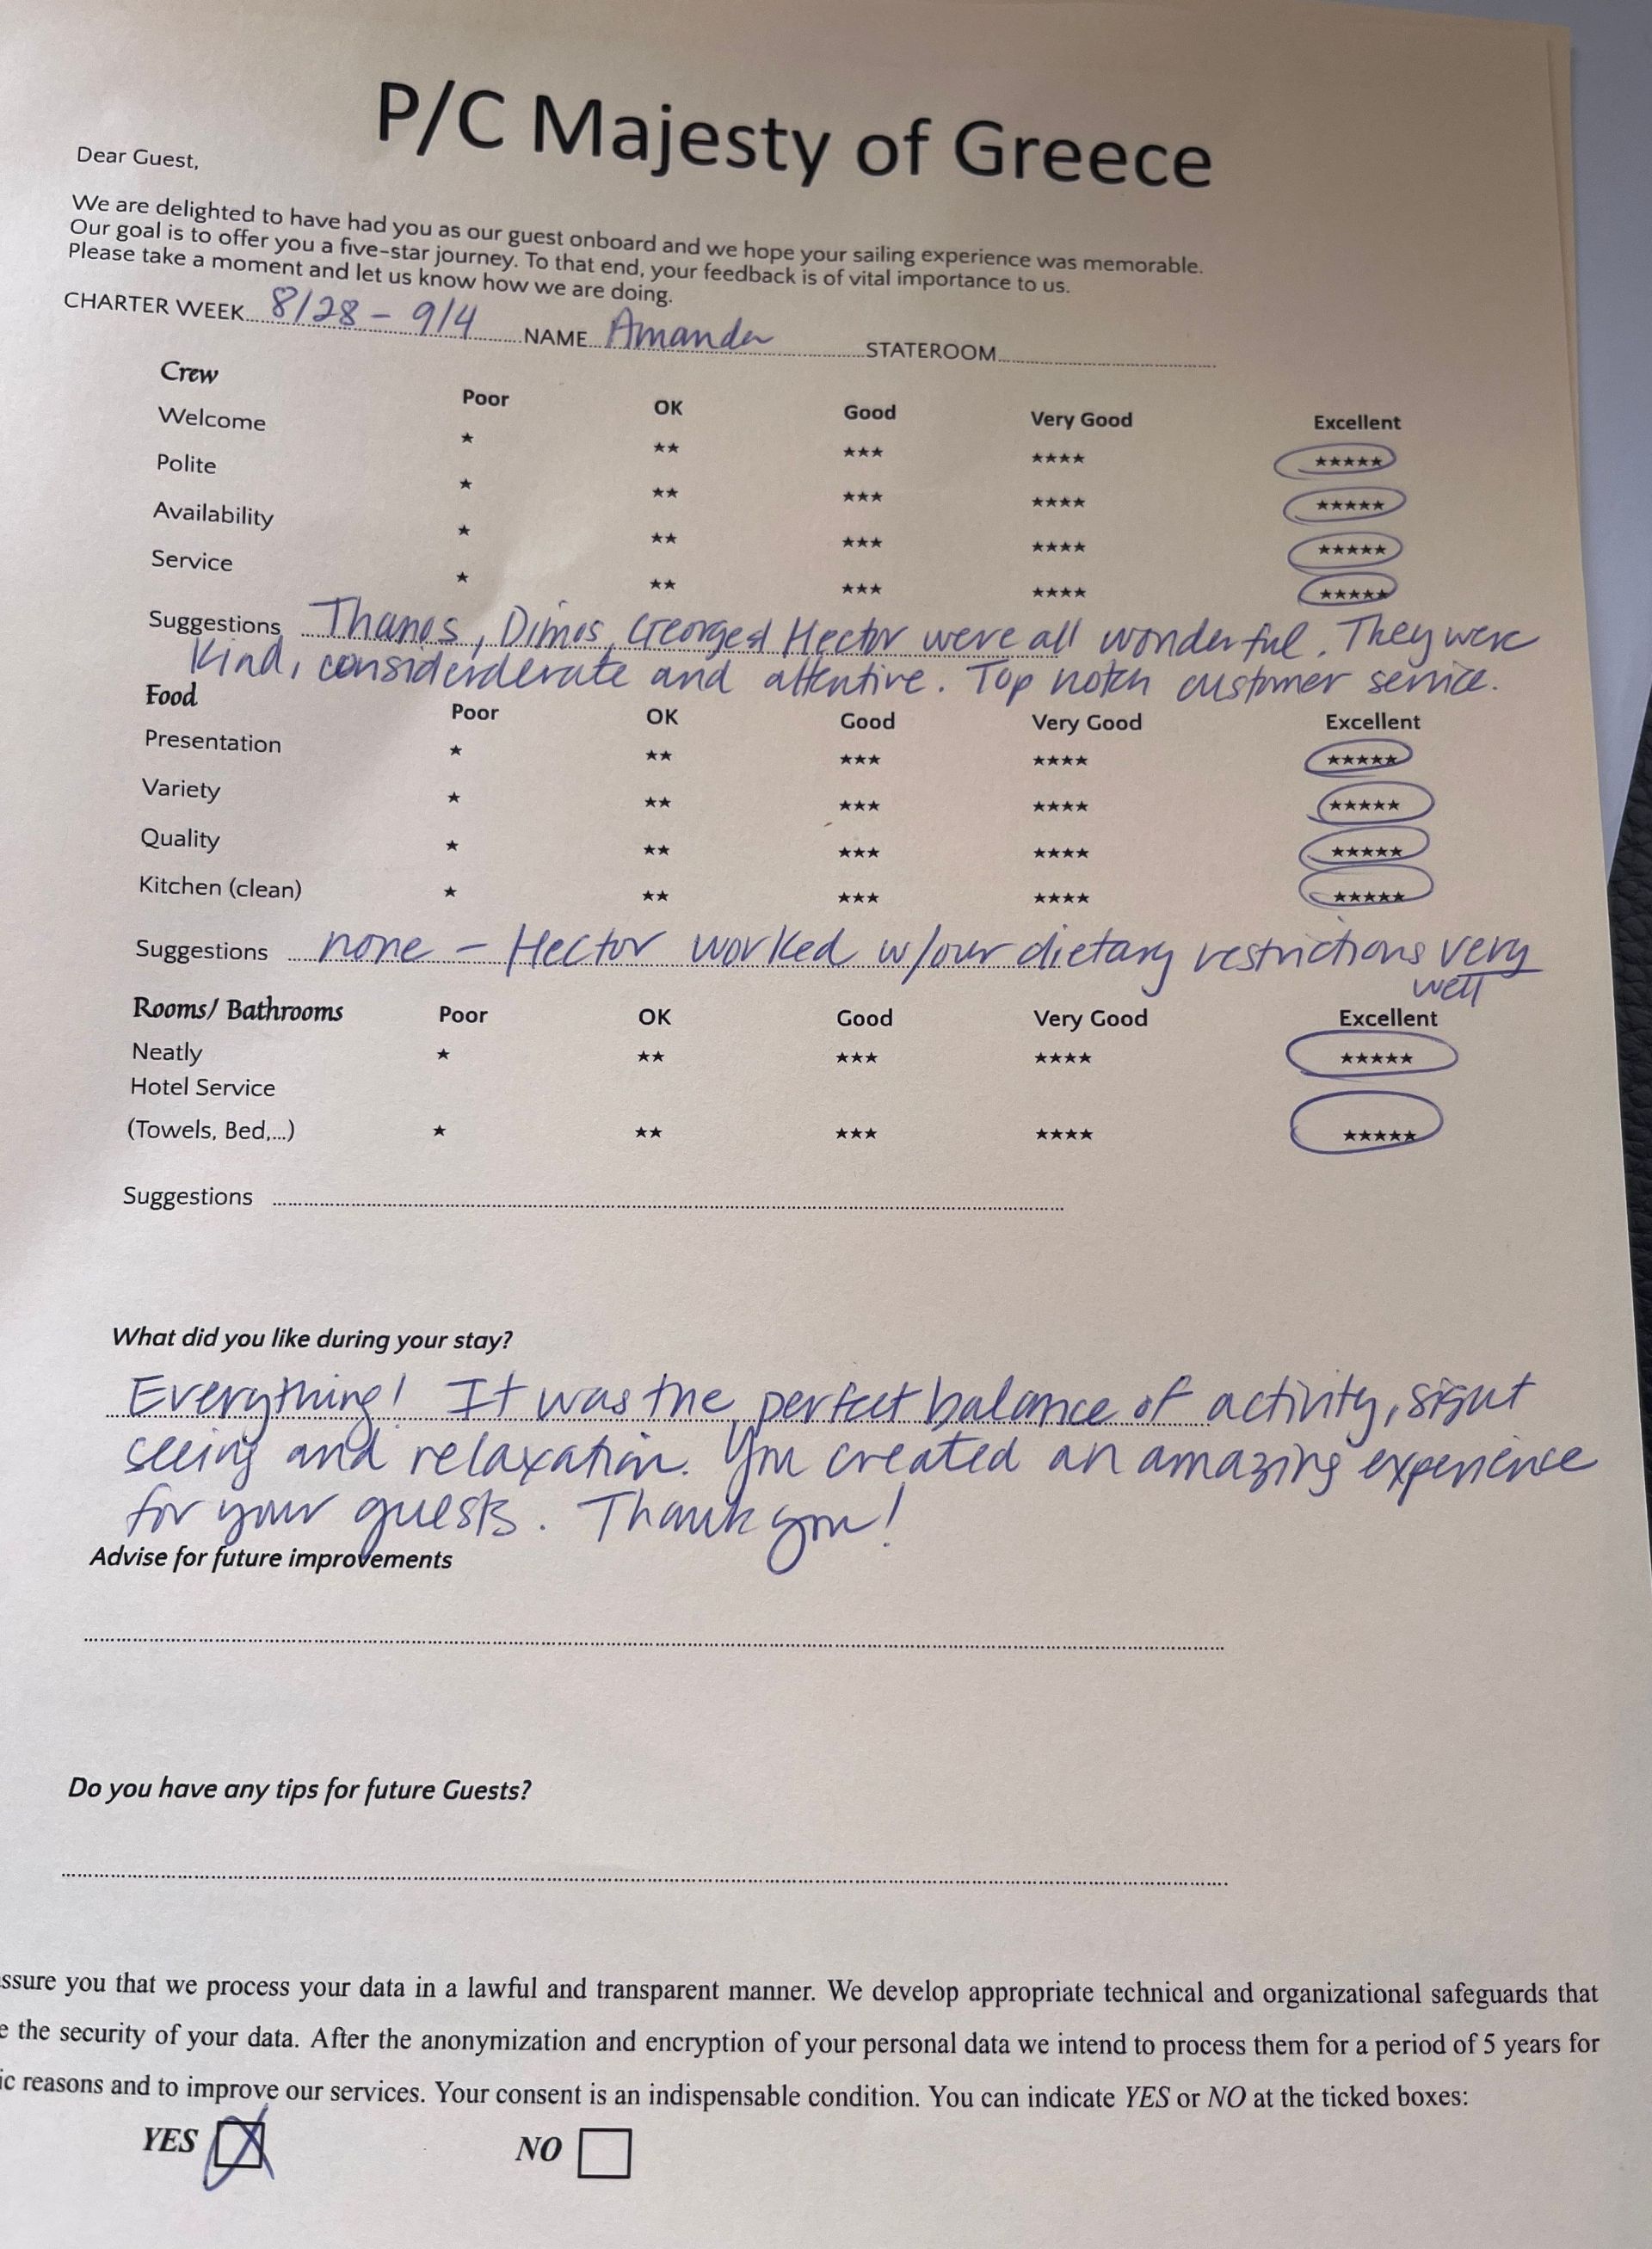 P/C Majesty of Greece
Dear Guest,
We are delighted to have had you as our guest onboard and we hope your sailing experience was memorable.
Our goal is to offer you a five-star journey. To that end, your feedback is of vital importance to us.
Please take a moment and let us know how we are doing.
CHARTER WEEK 8/28 - 9/4 NAME Amanda STATEROOM
Crew Poor OK Good Very Good Excellent
Welcome ★ ★★ ★★★ ★★★★ ★★★★★
Polite ★ ★★ ★★★ ★★★★ ★★★★★
Availability ★ ★★ ★★★ ★★★★ ★★★★★
Service ★ ★★ ★★★ ★★★★ ★★★★★
Suggestions Thanos, Dimos, George & Hector were all wonderful. They were
kind, considerderate and attentive. Top notch customer service.
Food Poor OK Good Very Good Excellent
Presentation ★ ★★ ★★★ ★★★★ ★★★★★
Variety ★ ★★ ★★★ ★★★★ ★★★★★
Quality ★ ★★ ★★★ ★★★★ ★★★★★
Kitchen (clean) ★ ★★ ★★★ ★★★★ ★★★★★
Suggestions none - Hector worked w/our dietary restrictions very
well
Rooms/ Bathrooms Poor OK Good Very Good Excellent
Neatly ★ ★★ ★★★ ★★★★ ★★★★★
Hotel Service
(Towels, Bed,...) ★ ★★ ★★★ ★★★★ ★★★★★
Suggestions
What did you like during your stay?
Everything! It was the perfect balance of activity, sight
seeing and relaxation. You created an amazing experience
for your guests. Thank you!
Advise for future improvements
Do you have any tips for future Guests?
ssure you that we process your data in a lawful and transparent manner. We develop appropriate technical and organizational safeguards that
e the security of your data. After the anonymization and encryption of your personal data we intend to process them for a period of 5 years for
ic reasons and to improve our services. Your consent is an indispensable condition. You can indicate YES or NO at the ticked boxes:
YES X NO